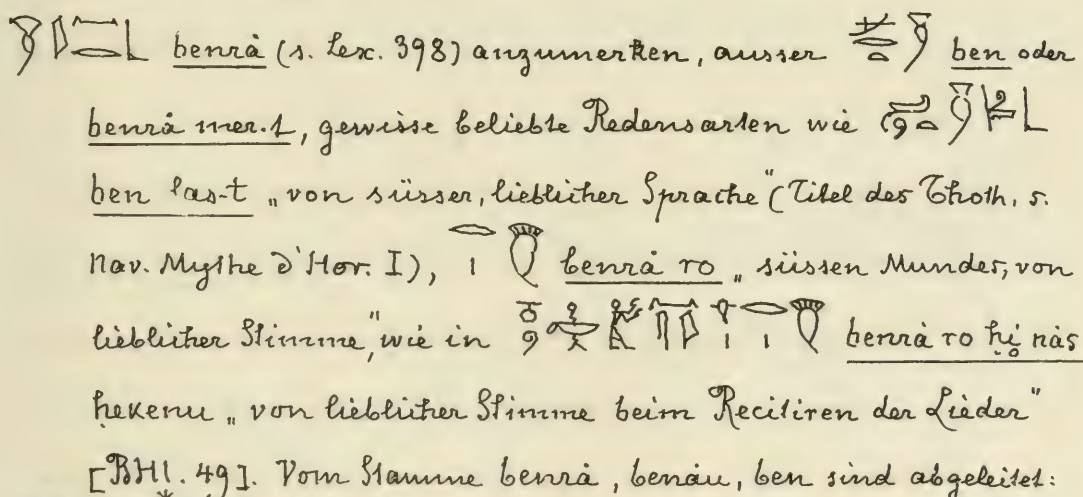 benrȧ (s. Lex. 398) anzumerken, ausser ben oder
benrȧ mer.t, gewisse beliebte Redensarten wie
ben las-t „von süsser, lieblicher Sprache" (Titel des Thoth, s.
Nav. Mythe d'Hor. I), benrȧ ro „süssen Mundes, von
lieblicher Stimme", wie in benrȧ ro ḥi nȧs
ḥekenu „von lieblicher Stimme beim Recitiren der Lieder"
[BHl. 49]. Vom Stamme benrȧ, benȧu, ben sind abgeleitet: